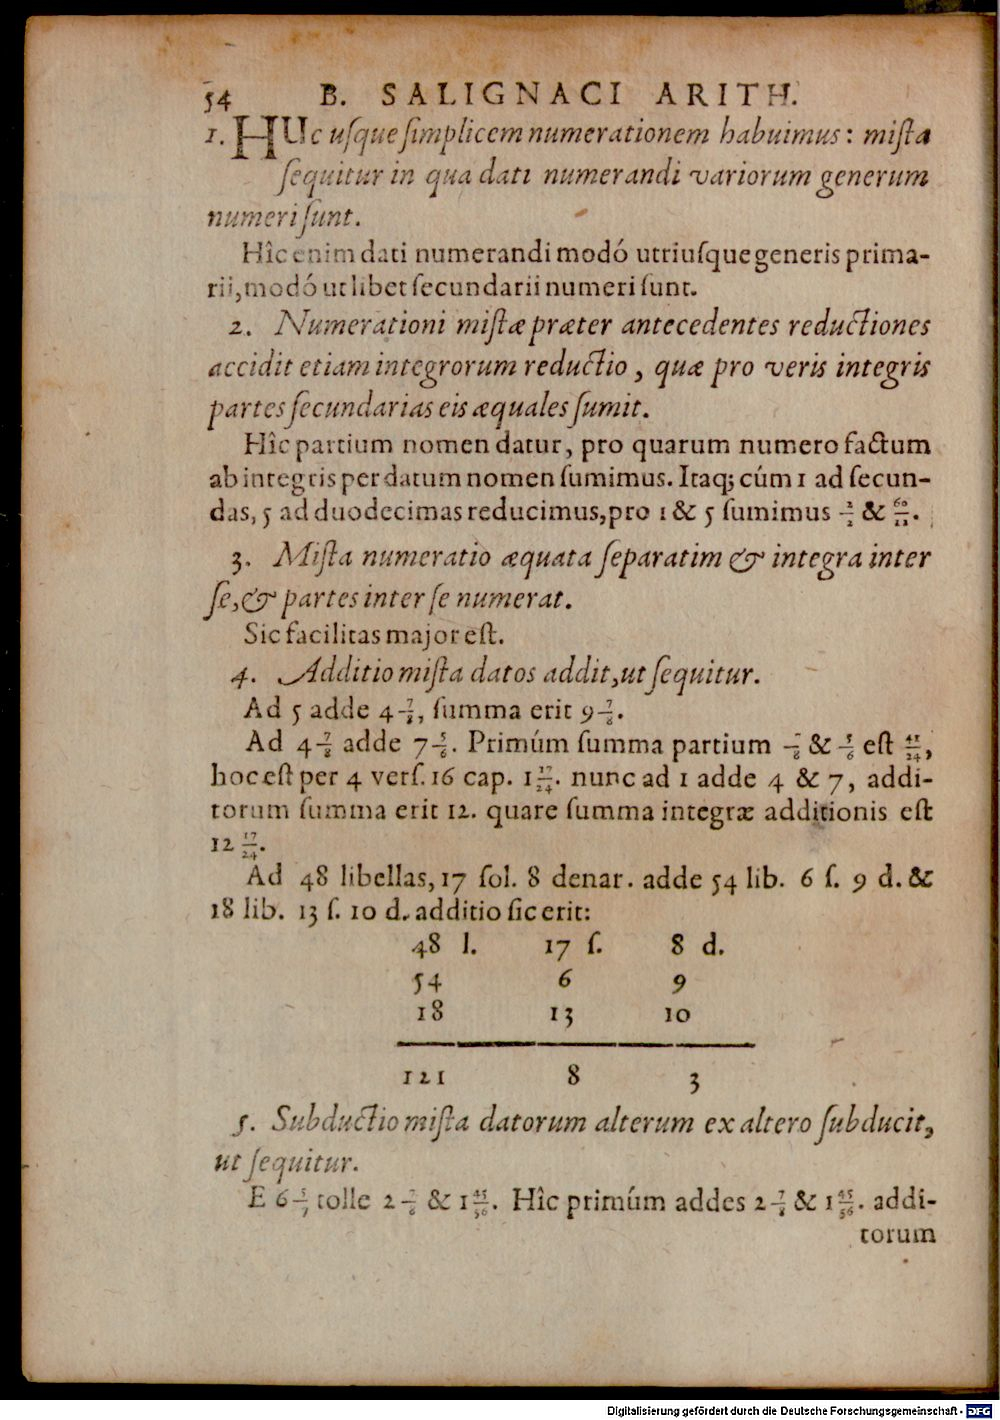 54 B. SALIGNACI ARITH.
1. HUc uſque ſimplicem numerationem habuimus: miſta
ſequitur in qua dati numerandi variorum generum
numeri ſunt.
Hîc enim dati numerandi modó utriuſque generis prima-
rii, modó ut libet ſecundarii numeri ſunt.
2. Numerationi miſtæ præter antecedentes reductiones
accidit etiam integrorum reductio, quæ pro veris integris
partes ſecundarias eis æquales ſumit.
Hîc partium nomen datur, pro quarum numero factum
ab integris per datum nomen ſumimus. Itaq; cúm 1 ad ſecun-
das, 5 ad duodecimas reducimus, pro 1 & 5 ſumimus 2/2 & 60/12.
3. Miſta numeratio æquata ſeparatim & integra inter
ſe, & partes inter ſe numerat.
Sic facilitas major eſt.
4. Additio miſta datos addit, ut ſequitur.
Ad 5 adde 4 7/8, ſumma erit 9 7/8.
Ad 4 7/8 adde 7 5/6. Primúm ſumma partium 7/8 & 5/6 eſt 41/24,
hoc eſt per 4 verſ. 16 cap. 1 17/24. nunc ad 1 adde 4 & 7, addi-
torum ſumma erit 12. quare ſumma integræ additionis eſt
12 17/24.
Ad 48 libellas, 17 ſol. 8 denar. adde 54 lib. 6 ſ. 9 d. &
18 lib. 13 ſ. 10 d. additio ſic erit:
48 l. 17 ſ. 8 d.
54 6 9
18 13 10
121 8 3
5. Subductio miſta datorum alterum ex altero ſubducit,
ut ſequitur.
E 6 5/7 tolle 2 7/8 & 1 45/56. Hîc primúm addes 2 7/8 & 1 45/56. addi-
torum
Digitalisierung gefördert durch die Deutsche Forschungsgemeinschaft - DFG